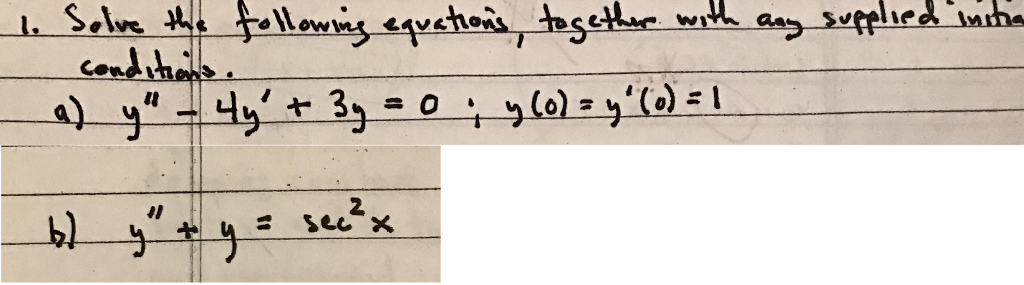 1. Solve the following equations, together with any supplied initia
conditions.
a) y" - 4y' + 3y = 0 ; y(0) = y'(0) = 1
b) y" + y = sec² x